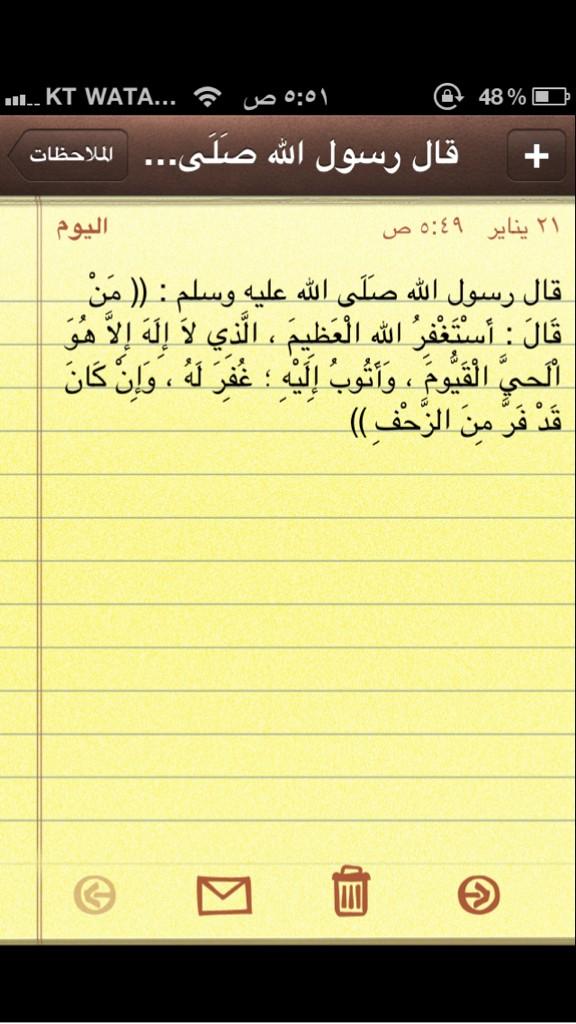 KT WATA... ٥:٥١ ص 48%
الملاحظات قال رسول الله صَلَى... +
اليوم ٢١ يناير ٥:٤٩ ص
قال رسول الله صَلَى الله عليه وسلم : (( مَنْ
قَالَ : أَسْتَغْفِرُ الله الْعَظِيمَ ، الَّذِي لاَ إِلَهَ إِلاَّ هُوَ
اْلَحيَّ الْقَيُّومَ ، وَأَتُوبُ إِلَيْهِ ؛ غُفِرَ لَهُ ، وَإِنْ كَانَ
قَدْ فَرَّ مِنَ الزَّحْفِ ))